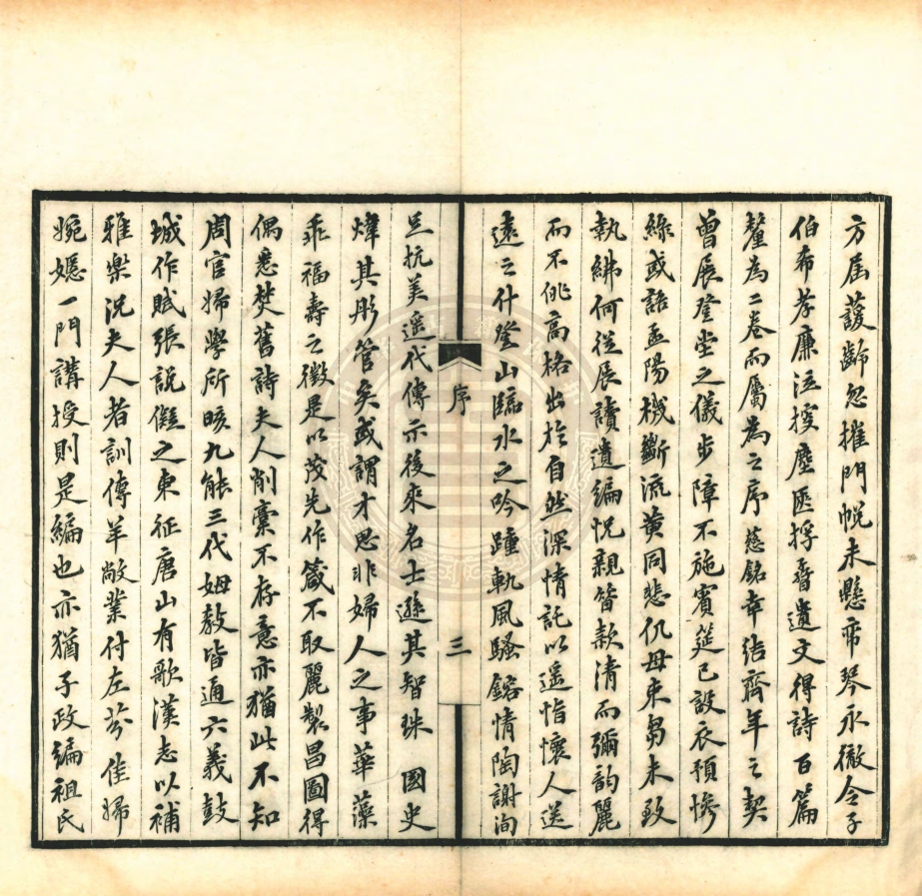 方屆護齡忽摧門帨未懸帝琴永徹令子
伯希孝廉泣搜塵匧捊脊遺文得詩百篇
釐為二卷而屬為之序慈銘幸結齊年之契
曾展登堂之儀步障不施賓筵已設衣預慘
綠或詣孟陽機斷流黃同悲仉母束芻未致
執紼何從展讀遺編怳親笄款清而彌韵麗
而不佻高格出於自然深情託以遥恉懷人送
遠之什登山臨水之吟踵軌風騷鎔情陶謝洵
序
三
足抗美遥代傳示後來名士遜其智珠 國史
煒其彤管矣或謂才思非婦人之事華藻
乖福壽之徵是以茂先作箴不取麗製昌圖得
偶悉焚舊詩夫人削稾不存意亦猶此不知
周官婦學所晐九能三代姆教皆通六義鼓
城作賦張說儗之東征唐山有歌漢志以補
雅樂況夫人者訓傳羊敞業付左芬佳婦
婉嫕一門講授則是編也亦猶子政編祖氏